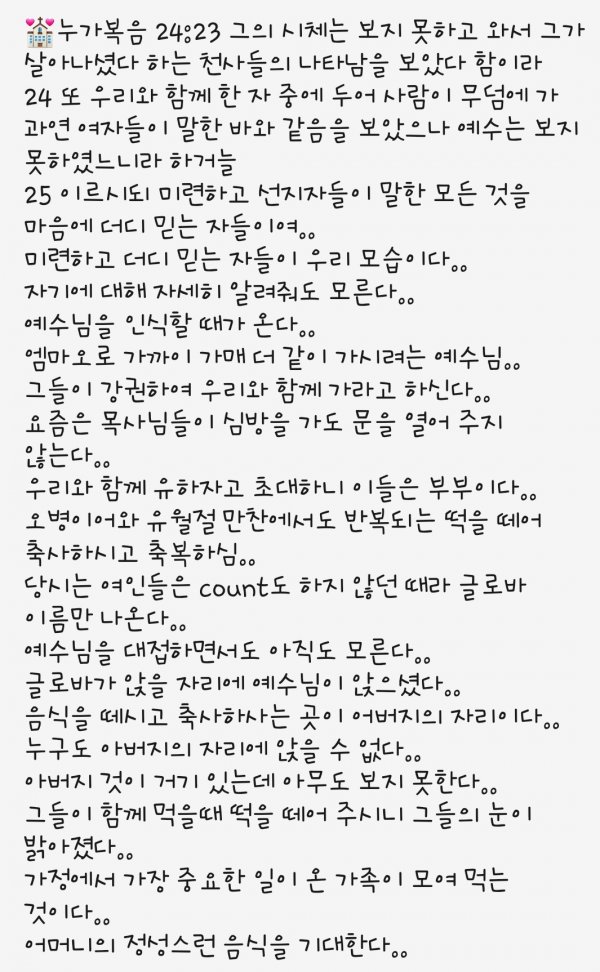 💒누가복음 24:23 그의 시체는 보지 못하고 와서 그가
살아나셨다 하는 천사들의 나타남을 보았다 함이라
24 또 우리와 함께 한 자 중에 두어 사람이 무덤에 가
과연 여자들이 말한 바와 같음을 보았으나 예수는 보지
못하였느니라 하거늘
25 이르시되 미련하고 선지자들이 말한 모든 것을
마음에 더디 믿는 자들이여。。
미련하고 더디 믿는 자들이 우리 모습이다。。
자기에 대해 자세히 알려줘도 모른다。。
예수님을 인식할 때가 온다。。
엠마오로 가까이 가매 더 같이 가시려는 예수님。。
그들이 강권하여 우리와 함께 가라고 하신다。。
요즘은 목사님들이 심방을 가도 문을 열어 주지
않는다。。
우리와 함께 유하자고 초대하니 이들은 부부이다。。
오병이어와 유월절 만찬에서도 반복되는 떡을 떼어
축사하시고 축복하심。。
당시는 여인들은 count도 하지 않던 때라 글로바
이름만 나온다。。
예수님을 대접하면서도 아직도 모른다。。
글로바가 앉을 자리에 예수님이 앉으셨다。。
음식을 떼시고 축사하사는 곳이 어버지의 자리이다。。
누구도 아버지의 자리에 앉을 수 없다。。
아버지 것이 거기 있는데 아무도 보지 못한다。。
그들이 함께 먹을때 떡을 떼어 주시니 그들의 눈이
밝아졌다。。
가정에서 가장 중요한 일이 온 가족이 모여 먹는
것이다。。
어머니의 정성스런 음식을 기대한다。。